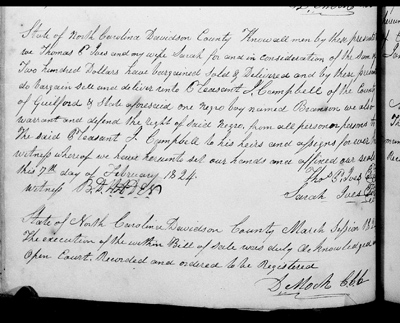 State of North Carolina Davidson County Know all men by these presents
we Thomas P Ives and my wife Sarah for and in consideration of the Sum of
Two Hundred Dollars have bargained Sold & Delivered and by these presents
do bargain sell and deliver unto Pleasant J. Campbell of the County
of Guilford & State aforesaid one negro boy named Branson we also
warrant and defend the right of Said Negro, from all person or persons to
The said Pleasant J Campbell to his heirs and assigns for ever In
witness whereof we have hereunto set our hands and affixed our seals
this 7th day of February 1824. Thos P Ives
witness Sarah Ives
State of North Carolina Davidson County March Session 1824
The execution of the within Bill of Sale was duly acknowledged in
Open Court. Recorded and ordered to be Registered
D Mock C.C.C.